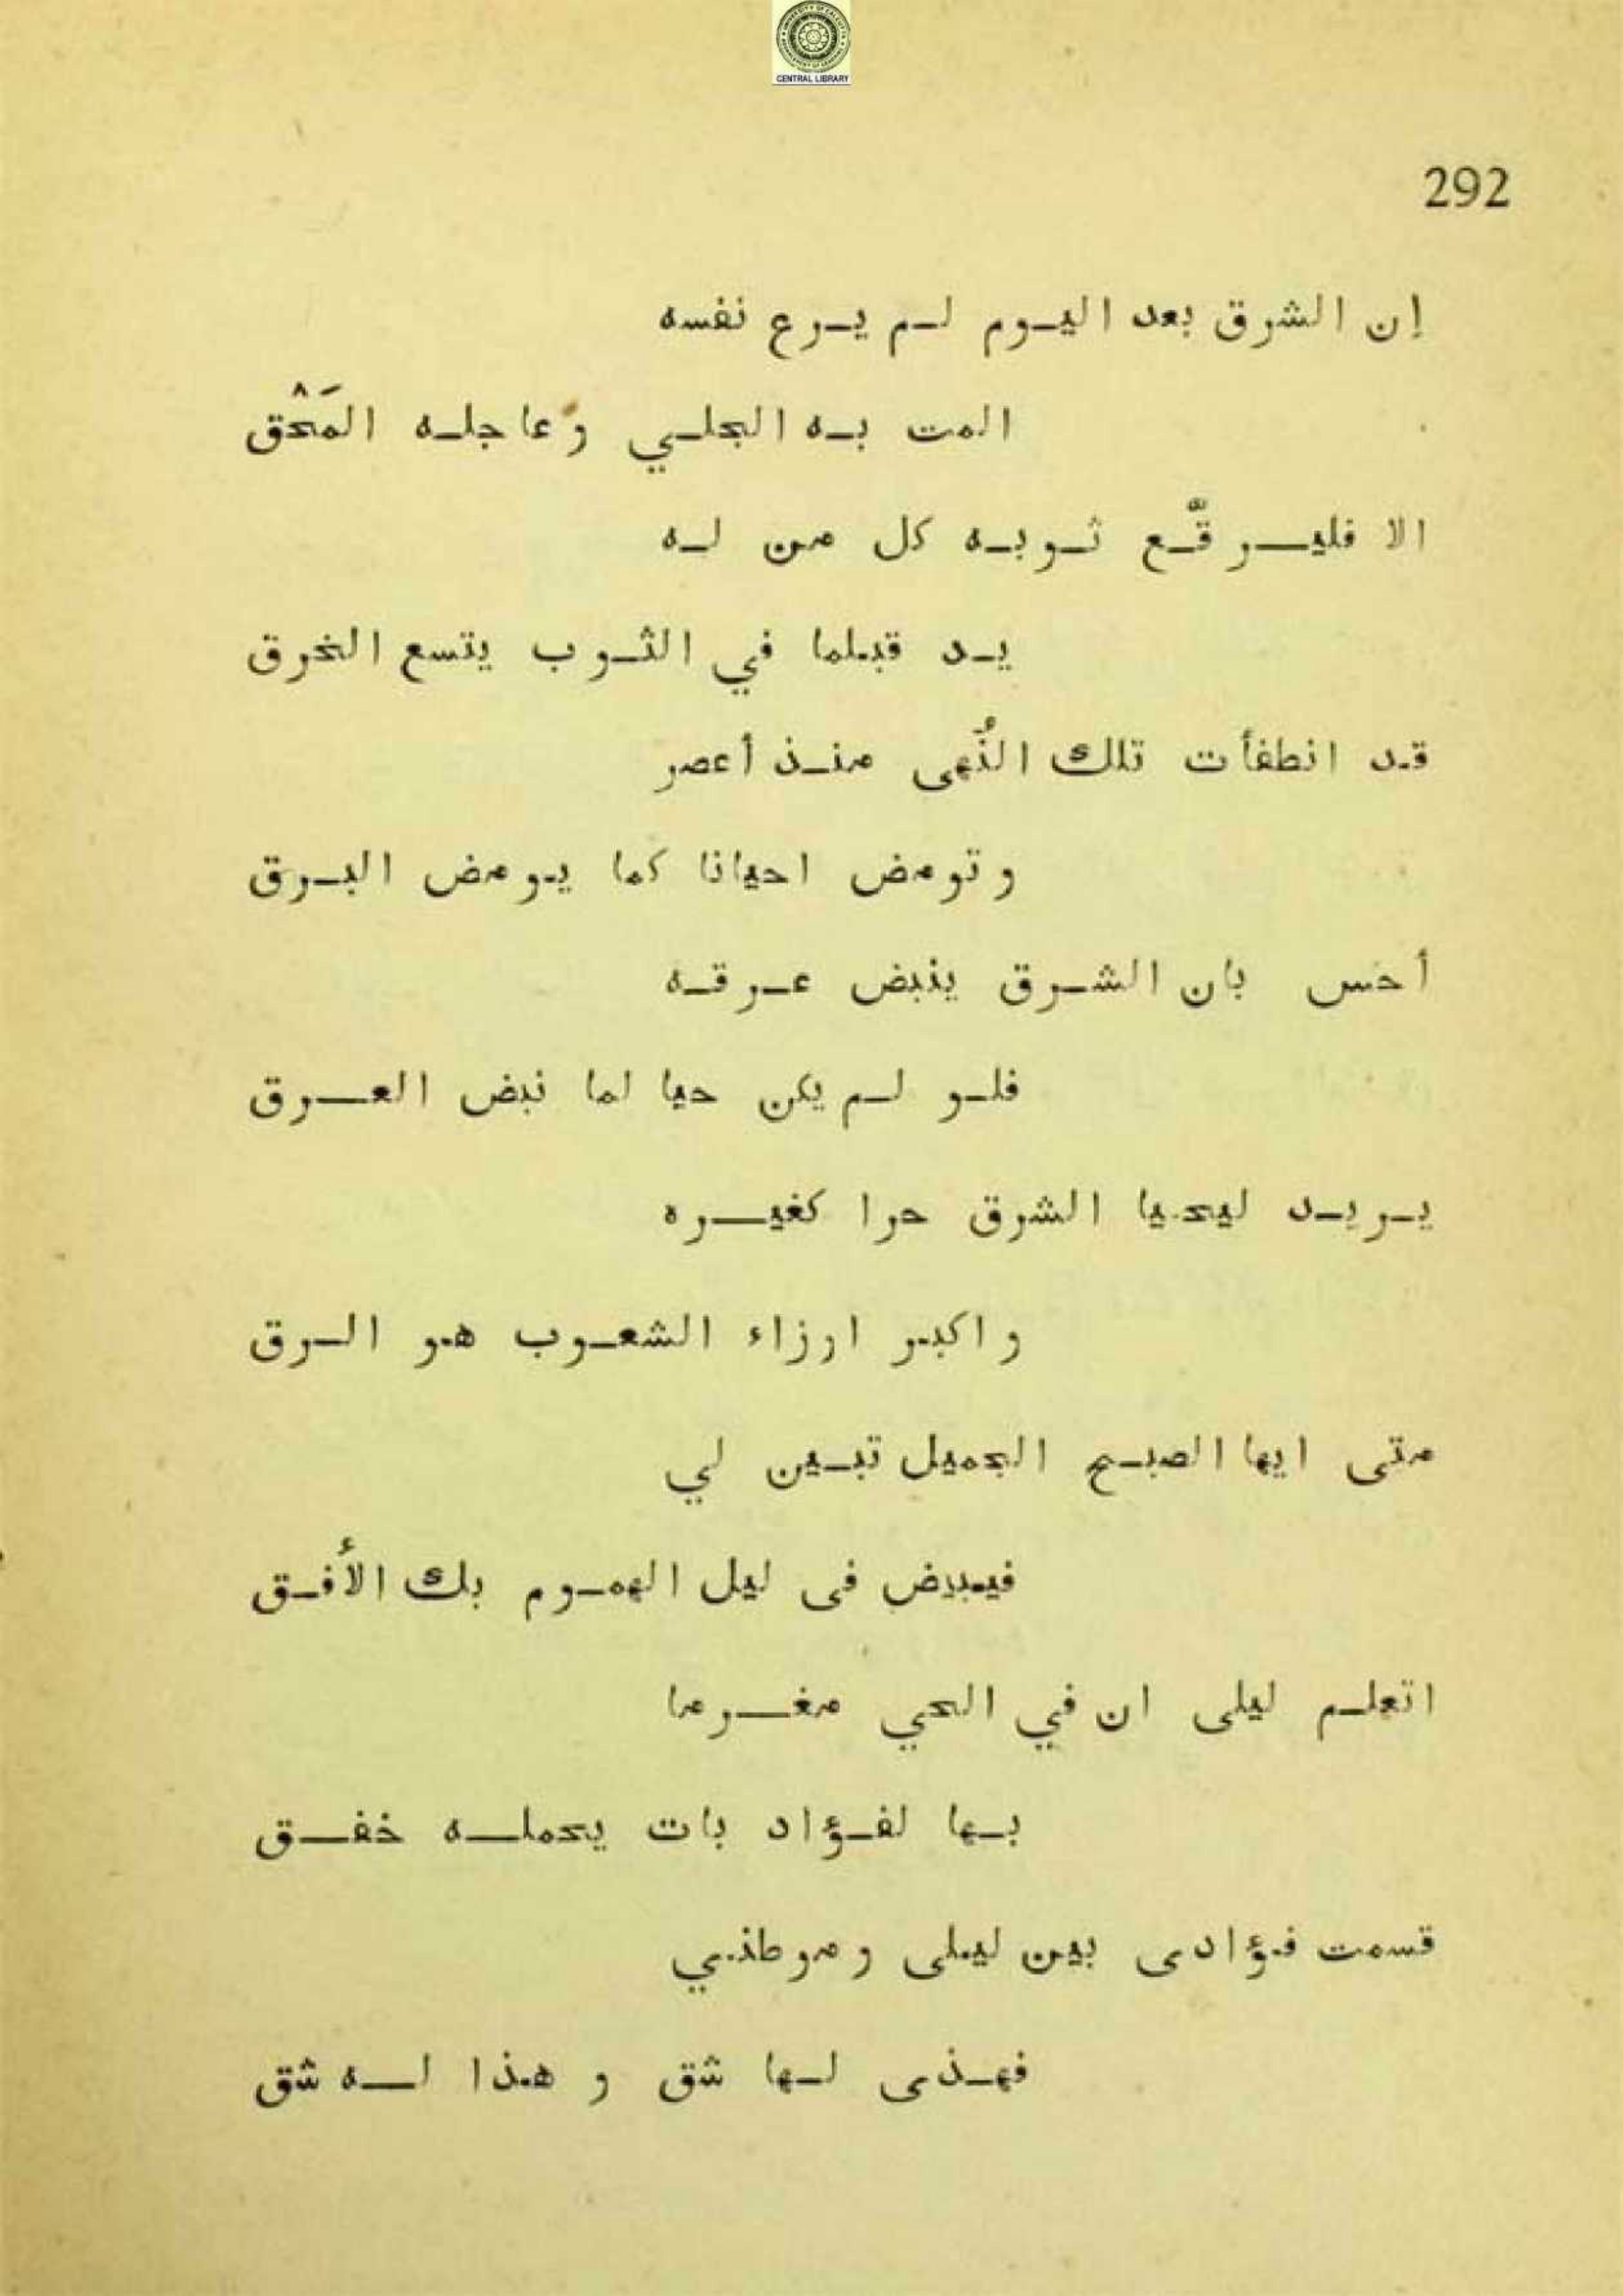 CENTRAL LIBRARY
292
إن الشرق بعد اليوم لم يرع نفسه
المت به الجلي وعاجله المَحْق
الا فليرقّع ثوبه كل من له
يد قبلما في الثوب يتسع الخرق
قد انطفأت تلك النُهى منذ أعصر
وتومض احيانا كما يومض البرق
أحس بان الشرق ينبض عرقه
فلو لم يكن حيا لما نبض العرق
يريد ليحيا الشرق حرا كغيره
واكبر ارزاء الشعوب هو الرق
متى ايها الصبح الجميل تبين لي
فيبيض فى ليل الهموم بك الأُفق
اتعلم ليلى ان في الحي مغرما
بها لفؤاد بات يحمله خفق
قسمت فؤادى بين ليلى وموطني
فهذى لها شق و هذا له شق